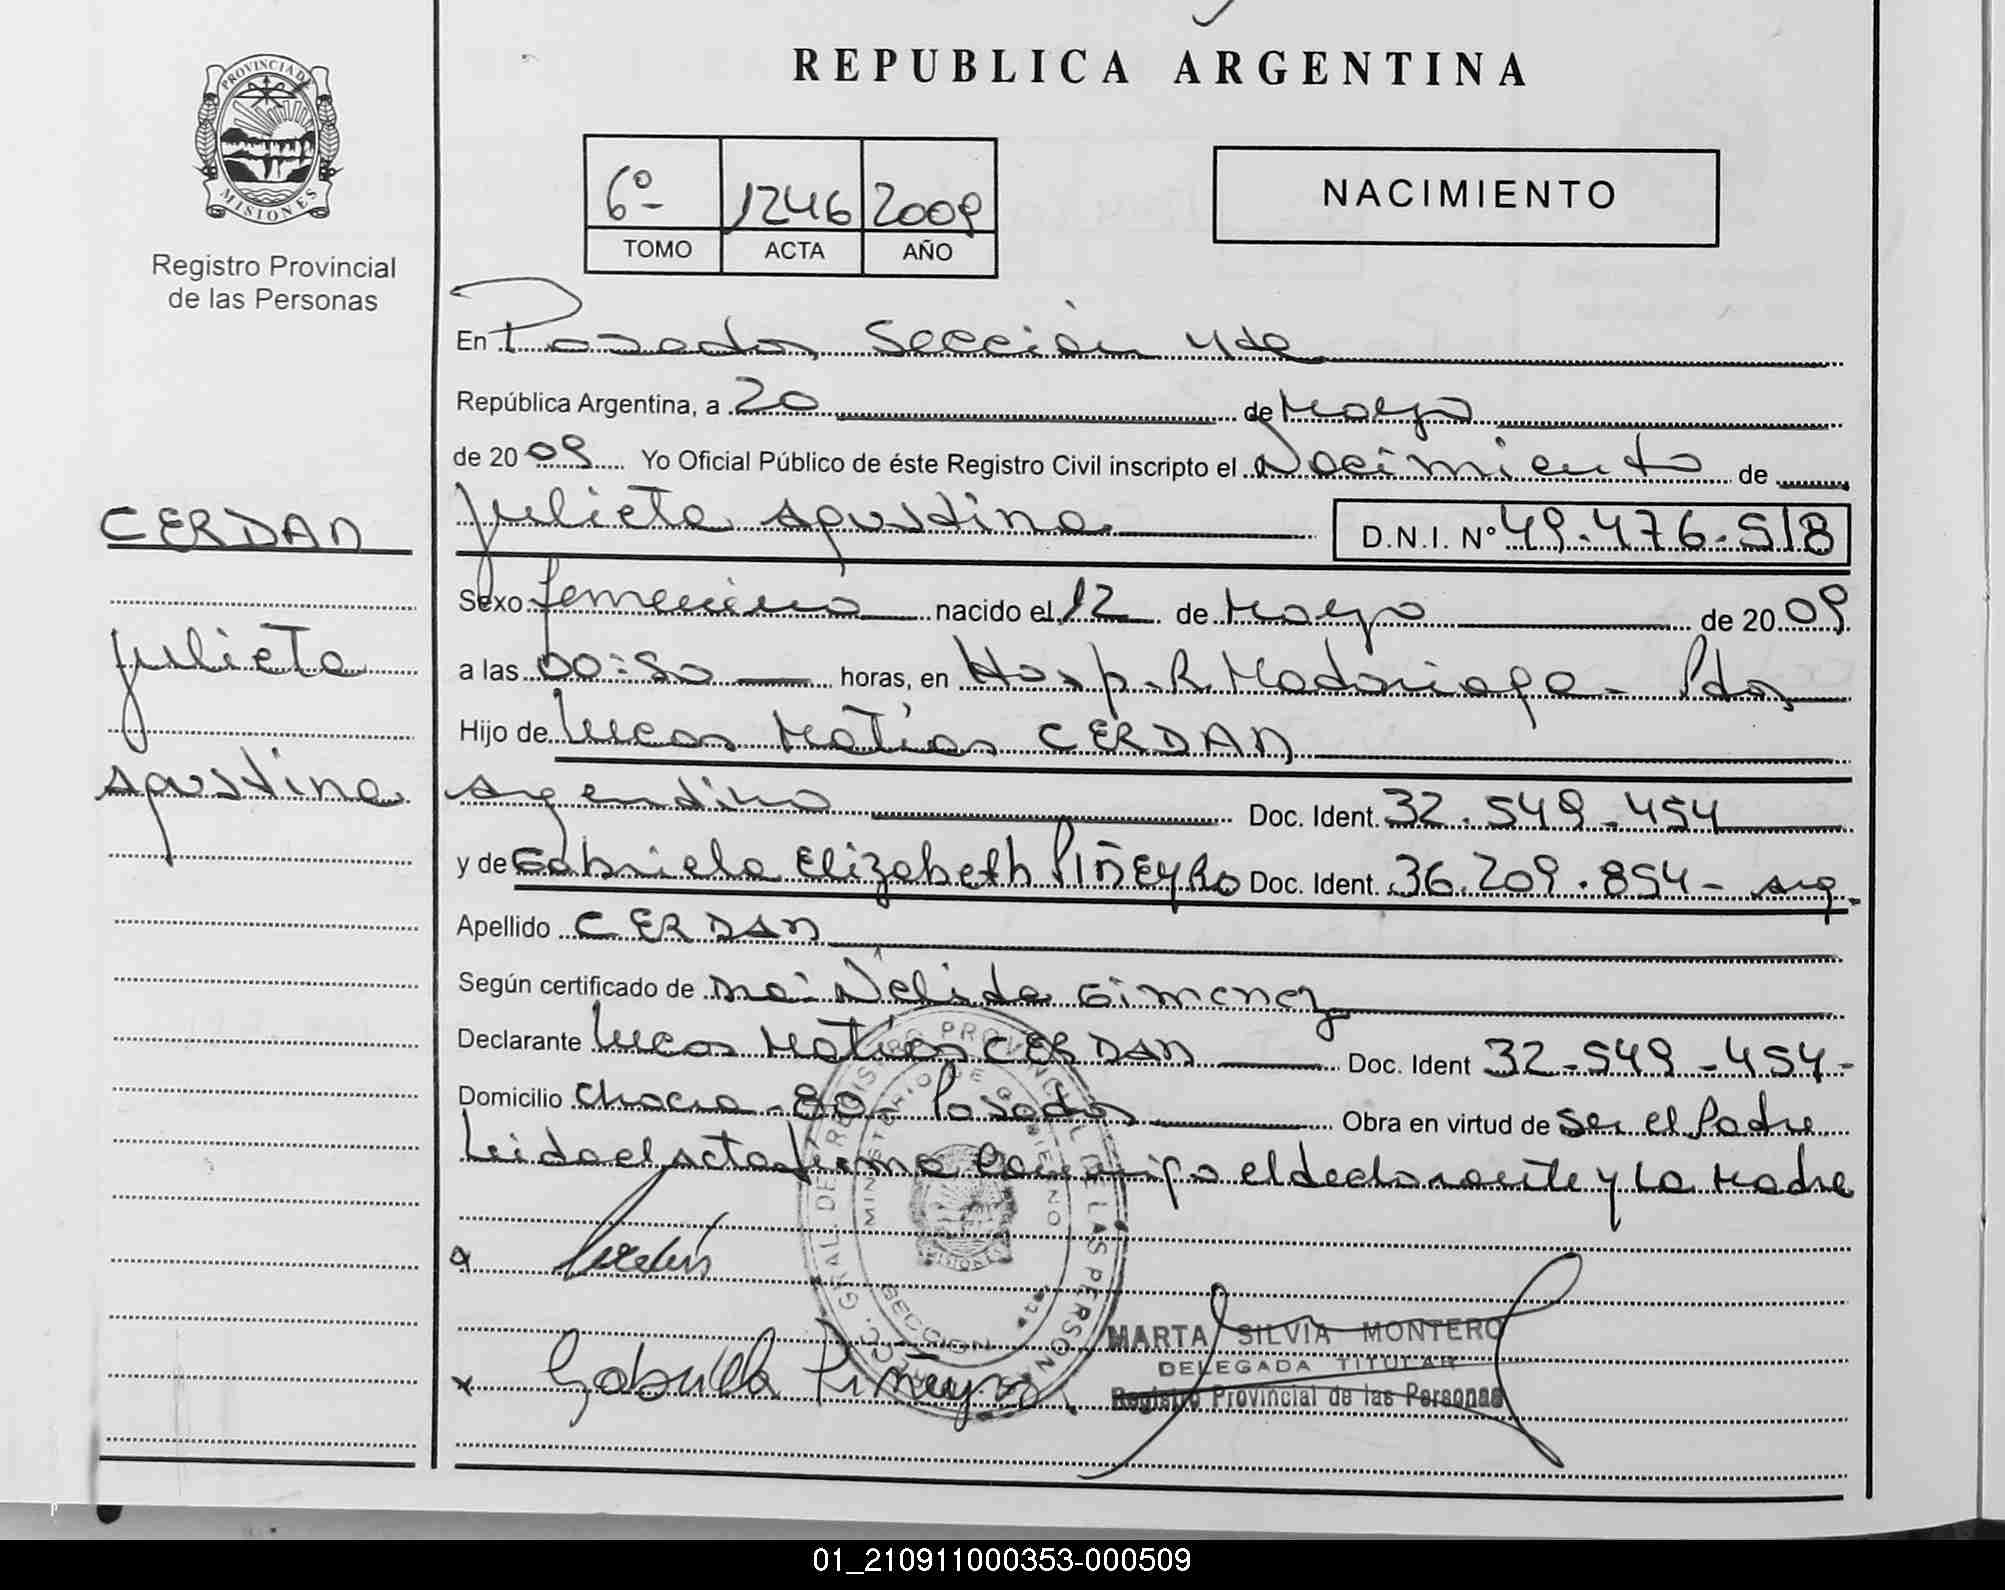 REPUBLICA ARGENTINA
PROVINCIA DE
MISIONES
Registro Provincial
de las Personas
6º 1246 2009
TOMO ACTA AÑO
NACIMIENTO
En Posadas, Sección 4ta
República Argentina, a 20 de Mayo
de 2009 Yo Oficial Público de éste Registro Civil inscripto el Nacimiento de
CERDAN
Julieta
Agustina
Julieta Agustina D.N.I. Nº 49.476.518
Sexo femenino nacido el 12 de Mayo de 2009
a las 00:50 horas, en Hosp. R. Madariaga - Pdas
Hijo de Lucas Matías CERDAN
Argentino Doc. Ident. 32.549.454
y de Gabriela Elizabeth PIÑEYRO Doc. Ident. 36.209.854 - arg.
Apellido CERDAN
Según certificado de Nélida Gimenez
Declarante Lucas Matías CERDAN Doc. Ident 32.549.454-
Domicilio Chacra - 80 - Posadas Obra en virtud de ser el Padre
Leida el acta firma conmigo el declarante y la Madre
Gabriela Piñeyro
MARTA SILVIA MONTERO
DELEGADA TITULAR
Registro Provincial de las Personas
MINISTERIO DE GOBIERNO
SECCION
MISIONES
01_210911000353-000509